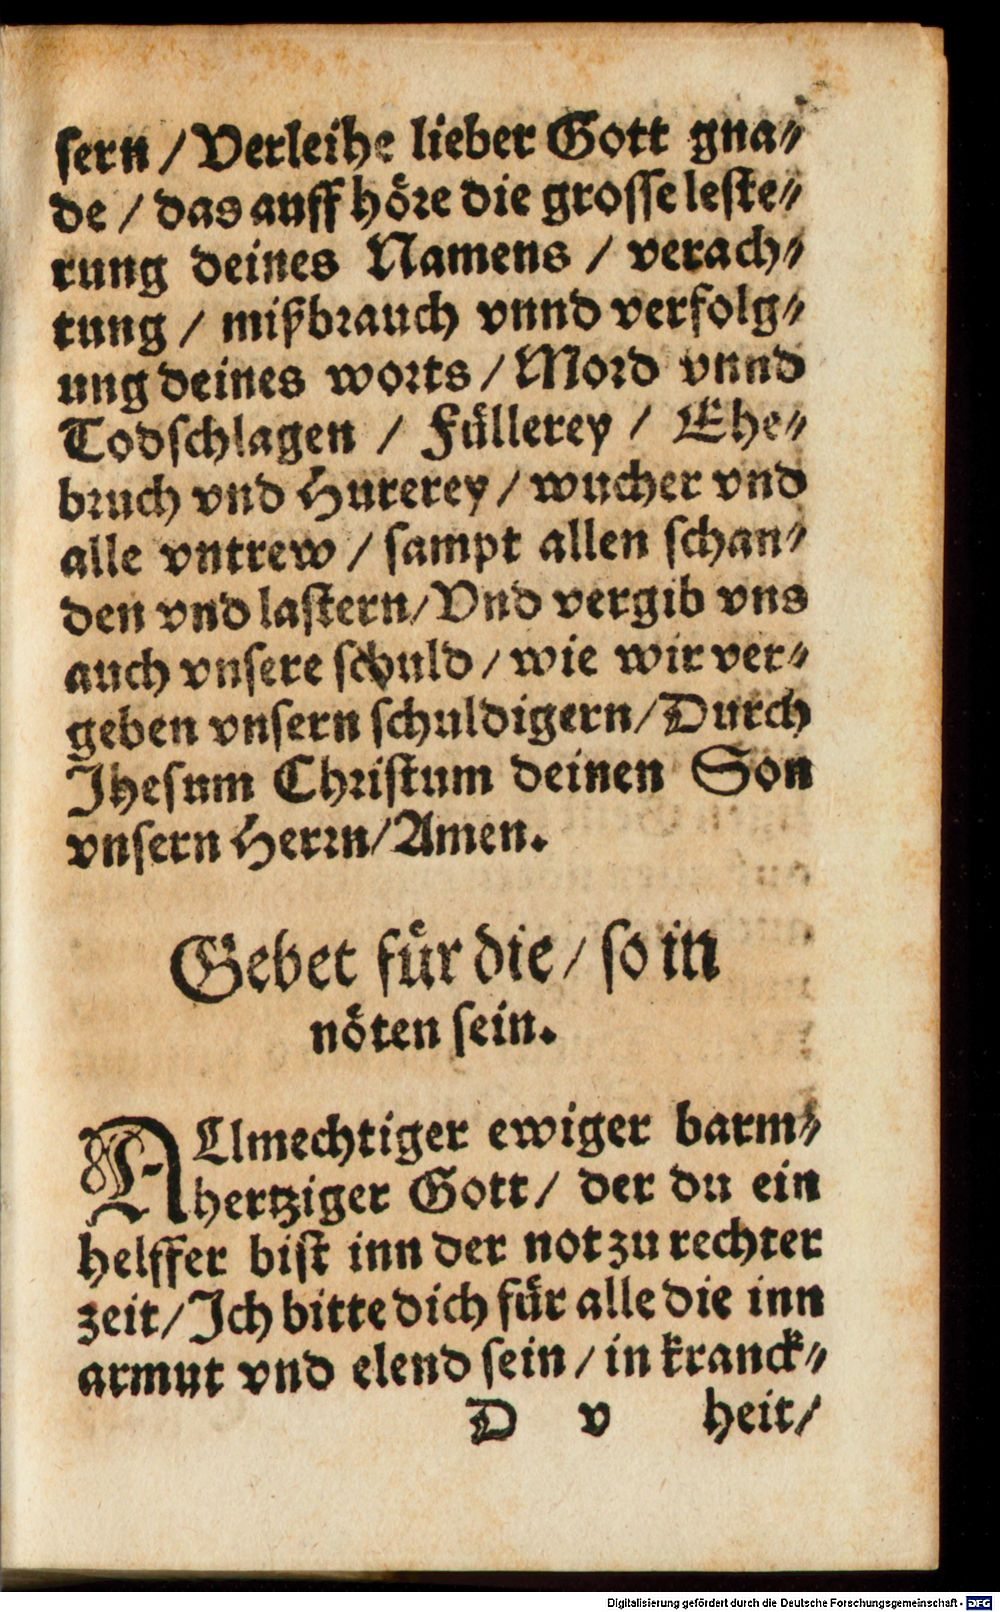 sern / Verleihe lieber Gott gna⸗
de / das auff höre die grosse leste⸗
rung deines Namens / verach⸗
tung / mißbrauch vnnd verfolg⸗
ung deines worts / Mord vnnd
Todschlagen / Füllerey / Ehe⸗
bruch vnd Hurerey / wucher vnd
alle vntrew / sampt allen schan⸗
den vnd lastern / Vnd vergib vns
auch vnsere schuld / wie wir ver⸗
geben vnsern schuldigern / Durch
Jhesum Christum deinen Son
vnsern Herrn / Amen.
Gebet für die / so in
nöten sein.
ALlmechtiger ewiger barm⸗
hertziger Gott / der du ein
helffer bist inn der not zu rechter
zeit / Jch bitte dich für alle die inn
armut vnd elend sein / in kranck⸗
D v heit /
Digitalisierung gefördert durch die Deutsche Forschungsgemeinschaft - DFG